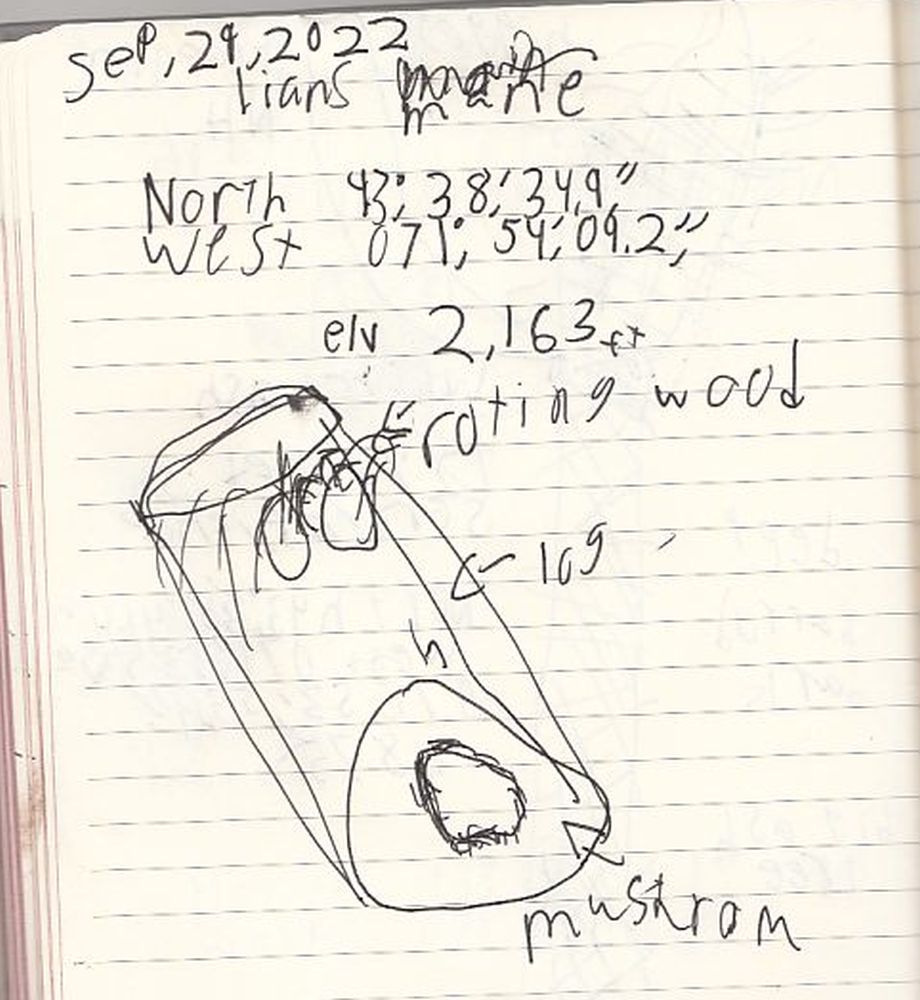 Sep, 29, 2022
lians mane
North 43°, 38,' 34.9"
West 071°, 54,' 09.2,"
elv 2,163 ft
roting wood
log
mushrom